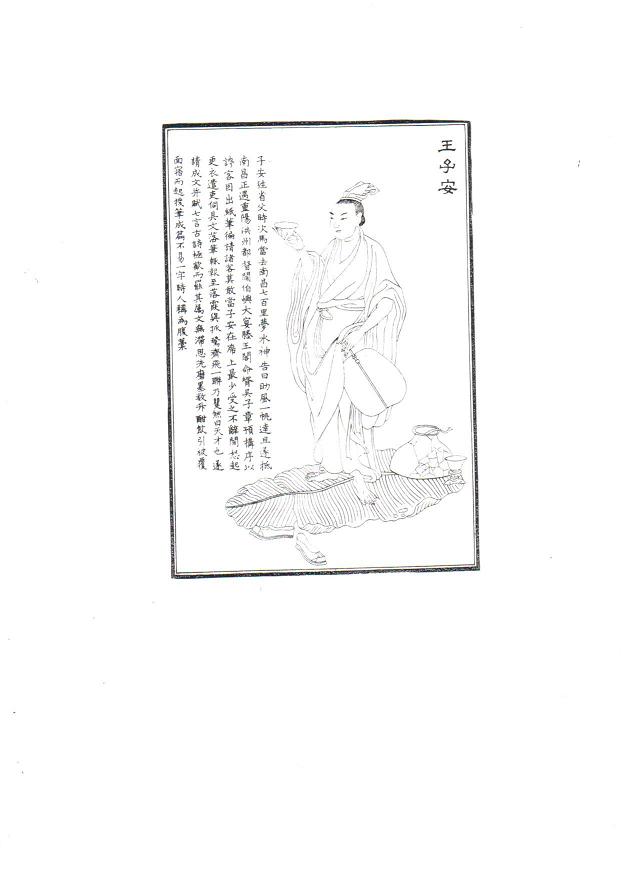 王子安
子安往省父時次馬當去南昌七百里夢水神告曰助風一帆達旦遂抵
南昌正遇重陽洪州都督閻伯嶼大宴滕王閣命壻吳子章預構序以
誇客因出紙筆徧請諸客莫敢當子安在席上最少受之不辭閻怒起
更衣遣吏伺其文落筆輒報至落霞與孤鶩齊飛一聯乃矍然曰天才也遂
請成文并賦七言古詩極歡而罷其屬文無滯思先磨墨數升酣飲引被覆
面寤而起援筆成篇不易一字時人稱為腹藁